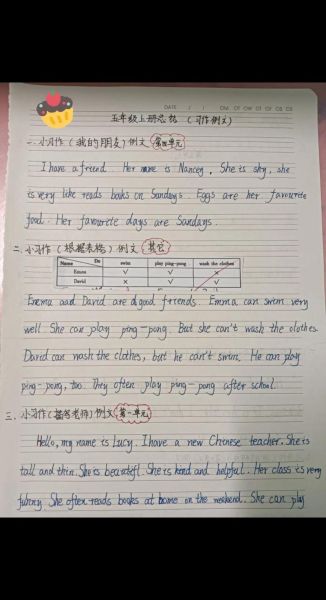 DATE / / OM OT OW OT OF OS OS
五年级上册总结 (习作例文)
一. 小习作 (我的朋友) 例文 第四单元
I have a friend. Her name is Nancy, She is shy, she
is very like reads books on Sundays. Eggs are her favourite
food. Her favourite days are Sundays.
二. 小习作 (根据表格) 例文 其它
Name Do swim play ping-pong wash the clothes
Emma √ √ ×
David × √ √
Emma and David are good friends. Emma can swim very
well. She can play ping-pong. But she can't wash the clothes.
David can wash the clothes, but he can't swim. He can play
ping-pong, too. They often play ping-pong after school.
三. 小习作 (描写老师) 例文 第一单元
Hello, my name is Lucy. I have a new Chinese teacher. She is
tall and thin. She is beautiful. She is kind and helpful. Her class is very
funny. She often reads books at home on the weekend. She can play